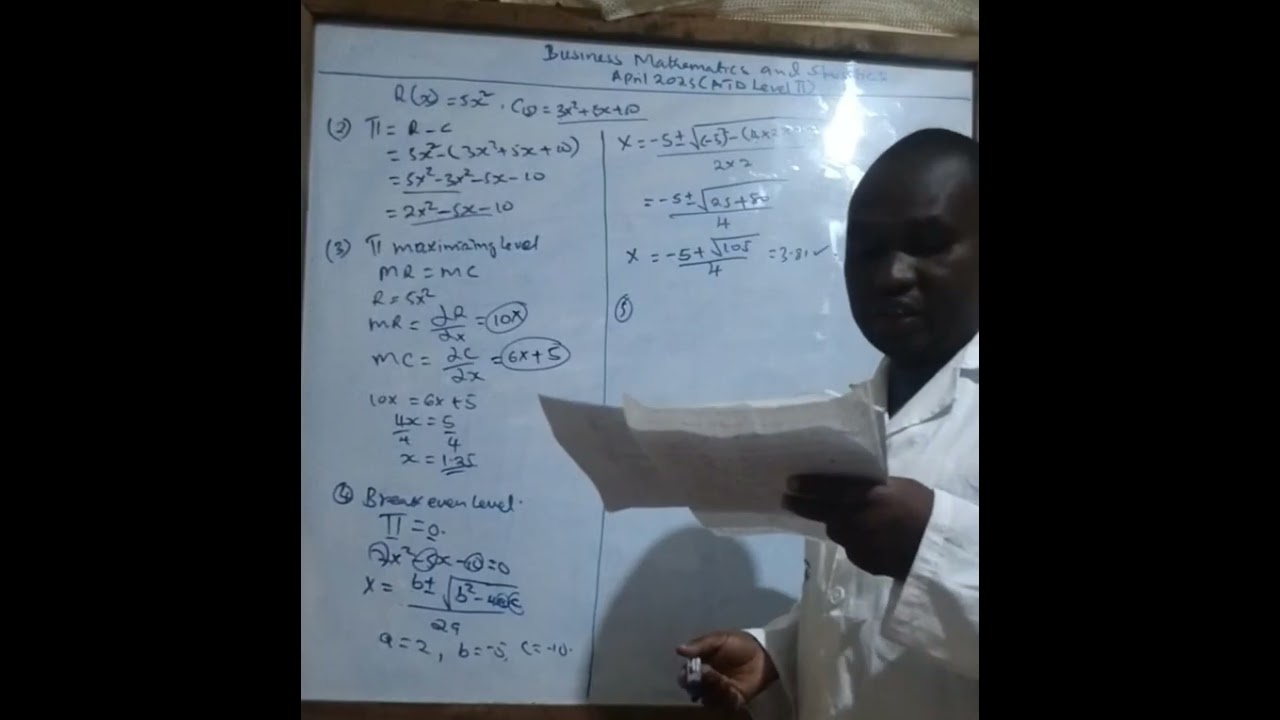 Business Mathematics and Statistics
April 2023 (ATD Level II)
R(x) = 5x², C(x) = 3x²+5x+10
(2) Π = R - C
= 5x² - (3x² + 5x + 10)
= 5x² - 3x² - 5x - 10
= 2x² - 5x - 10
(3) Π maximizing level
MR = MC
R = 5x²
MR = ∂R/∂x = 10x
MC = ∂C/∂x = 6x + 5
10x = 6x + 5
4x/4 = 5/4
x = 1.25
(4) Break even level.
Π = 0.
2x² - 5x - 10 = 0
x = b ± √b² - 4ac / 2a
a = 2, b = -5, c = -10.
x = -5 ± √(-5)² - (4×2×
2×2
= -5 ± √25+80 / 4
x = -5 + √105 / 4 = 3.81 ✓
(5)